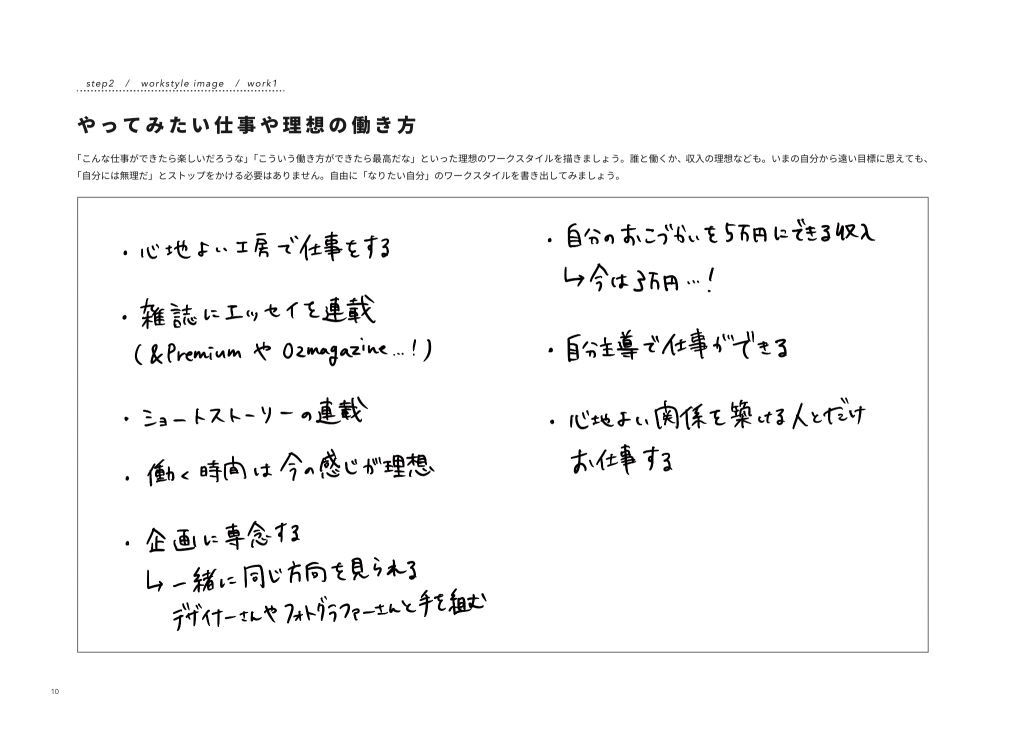 step2 / workstyle image / work1
やってみたい仕事や理想の働き方
「こんな仕事ができたら楽しいだろうな」「こういう働き方ができたら最高だな」といった理想のワークスタイルを描きましょう。誰と働くか、収入の理想なども。いまの自分から遠い目標に思えても、
「自分には無理だ」とストップをかける必要はありません。自由に「なりたい自分」のワークスタイルを書き出してみましょう。
・心地よい工房で仕事をする
・雑誌にエッセイを連載
(&Premium や Ozmagazine…!)
・ショートストーリーの連載
・働く時間は今の感じが理想
・企画に専念する
↳一緒に同じ方向を見られる
デザイナーさんやフォトグラファーさんと手を組む
・自分のおこづかいを5万円にできる収入
↳今は3万円…!
・自分主導で仕事ができる
・心地よい関係を築ける人とだけ
お仕事する
10